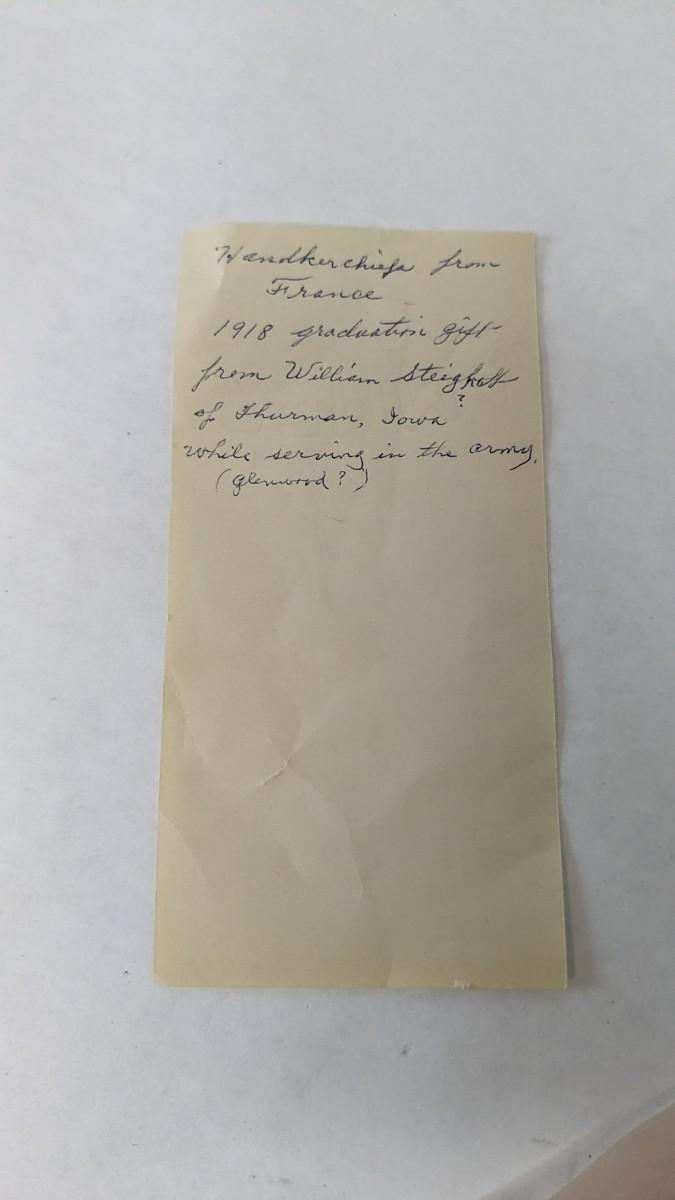 Handkerchiefs from
France
1918 graduation gift
from William Steighoff
?
of Thurman, Iowa
while serving in the army.
(Glenwood?)